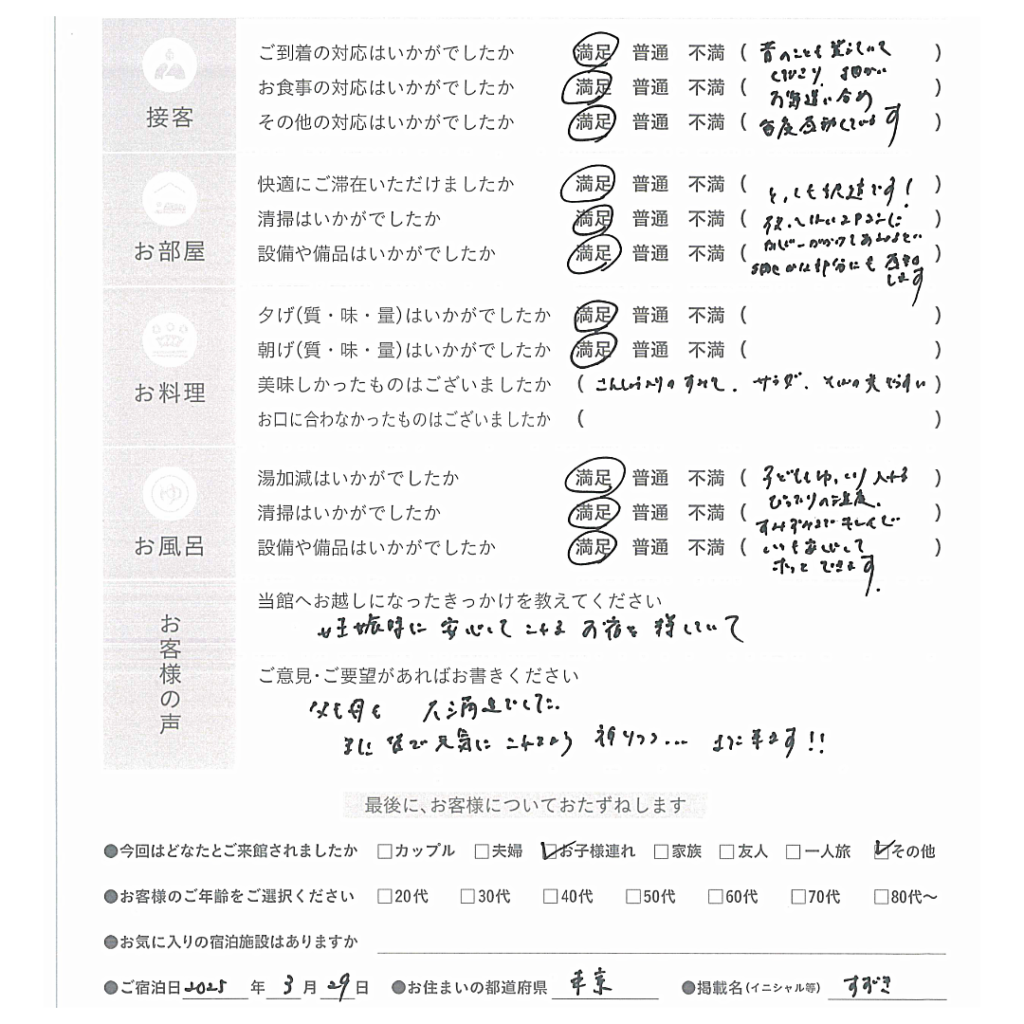 接客
ご到着の対応はいかがでしたか 満足 普通 不満 ( 昔のことも覚えていて )
お食事の対応はいかがでしたか 満足 普通 不満 ( くださり、細かい お気遣い含め )
その他の対応はいかがでしたか 満足 普通 不満 ( 毎度感動しています )
お部屋
快適にご滞在いただけましたか 満足 普通 不満 ( とっても快適です! )
清掃はいかがでしたか 満足 普通 不満 (
設備や備品はいかがでしたか 満足 普通 不満 ( 細やかな部分にも 感動します )
お料理
夕げ(質・味・量)はいかがでしたか 満足 普通 不満 ( )
朝げ(質・味・量)はいかがでしたか 満足 普通 不満 ( )
美味しかったものはございましたか ( サラダ、 )
お口に合わなかったものはございましたか ( )
お風呂
湯加減はいかがでしたか 満足 普通 不満 ( 子どももゆっくり入れる )
清掃はいかがでしたか 満足 普通 不満 ( ぴったりの温度、 すみずみまできれいで )
設備や備品はいかがでしたか 満足 普通 不満 ( いつも安心して ホッとできます。 )
お客様の声
当館へお越しになったきっかけを教えてください
妊娠時に安心してこれるお宿を探していて
ご意見・ご要望があればお書きください
父も母も 大満足でした。
また皆で元気にこれるよう 祈りつつ... また来ます!!
最後に、お客様についておたずねします
●今回はどなたとご来館されましたか □カップル □夫婦 ☑お子様連れ □家族 □友人 □一人旅 ☑その他
●お客様のご年齢をご選択ください □20代 □30代 □40代 □50代 □60代 □70代 □80代〜
●お気に入りの宿泊施設はありますか
●ご宿泊日 2025 年 3 月 29 日 ●お住まいの都道府県 東京 ●掲載名(イニシャル等) すずき